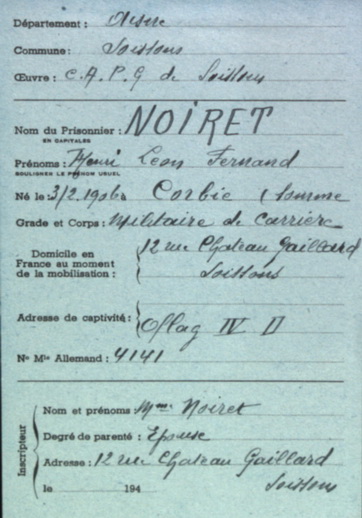 Département : Aisne
Commune : Soissons
Œuvre : C.A.P.G de Soissons
Nom du Prisonnier : NOIRET
EN CAPITALES
Prénoms : Henri Leon Fernand
SOULIGNER LE PRÉNOM USUEL
Né le 3/2.1906 à Corbie (Somme
Grade et Corps : Militaire de Carrière
Domicile en France au moment de la mobilisation : 12 rue Chateau Gaillard
Soissons
Adresse de captivité : Oflag IV D
No Mle Allemand : 4141
Inscripteur
Nom et prénoms Mme Noiret
Degré de parenté : Epouse
Adresse : 12 rue Chateau Gaillard
Soissons
le 194